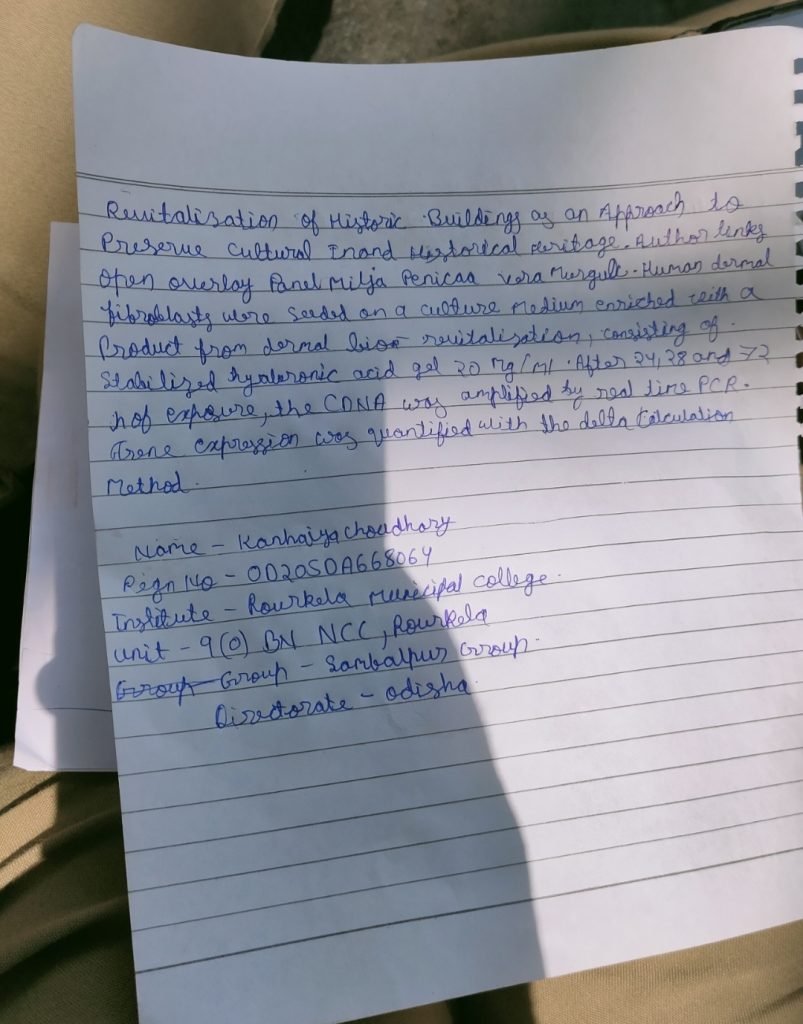 Revitalisation of Historic Buildings as an Approach to
Preserve Cultural Inand Historical Heritage. Author links
open overlay Panel Milja Penicaa vera Murgult. Human dermal
fibroblasts were seeded on a culture Medium enriched with a
Product from dermal bion revitalization, consisting of.
Stabilized hyaloronic acid gel 20 mg/ml. After 24, 28 and 72
h of exposure, the CDNA was amplified by real time PCR.
Gene expression was quantified with the delta Calculation
Method.
Name - Kanhaiya Choudhary
Regn No - OD20SDA668064
Institute - Rourkela Municipal College.
Unit - 9(O) BN NCC, Rourkela
Group - Sambalpur Group.
Directorate - Odisha.